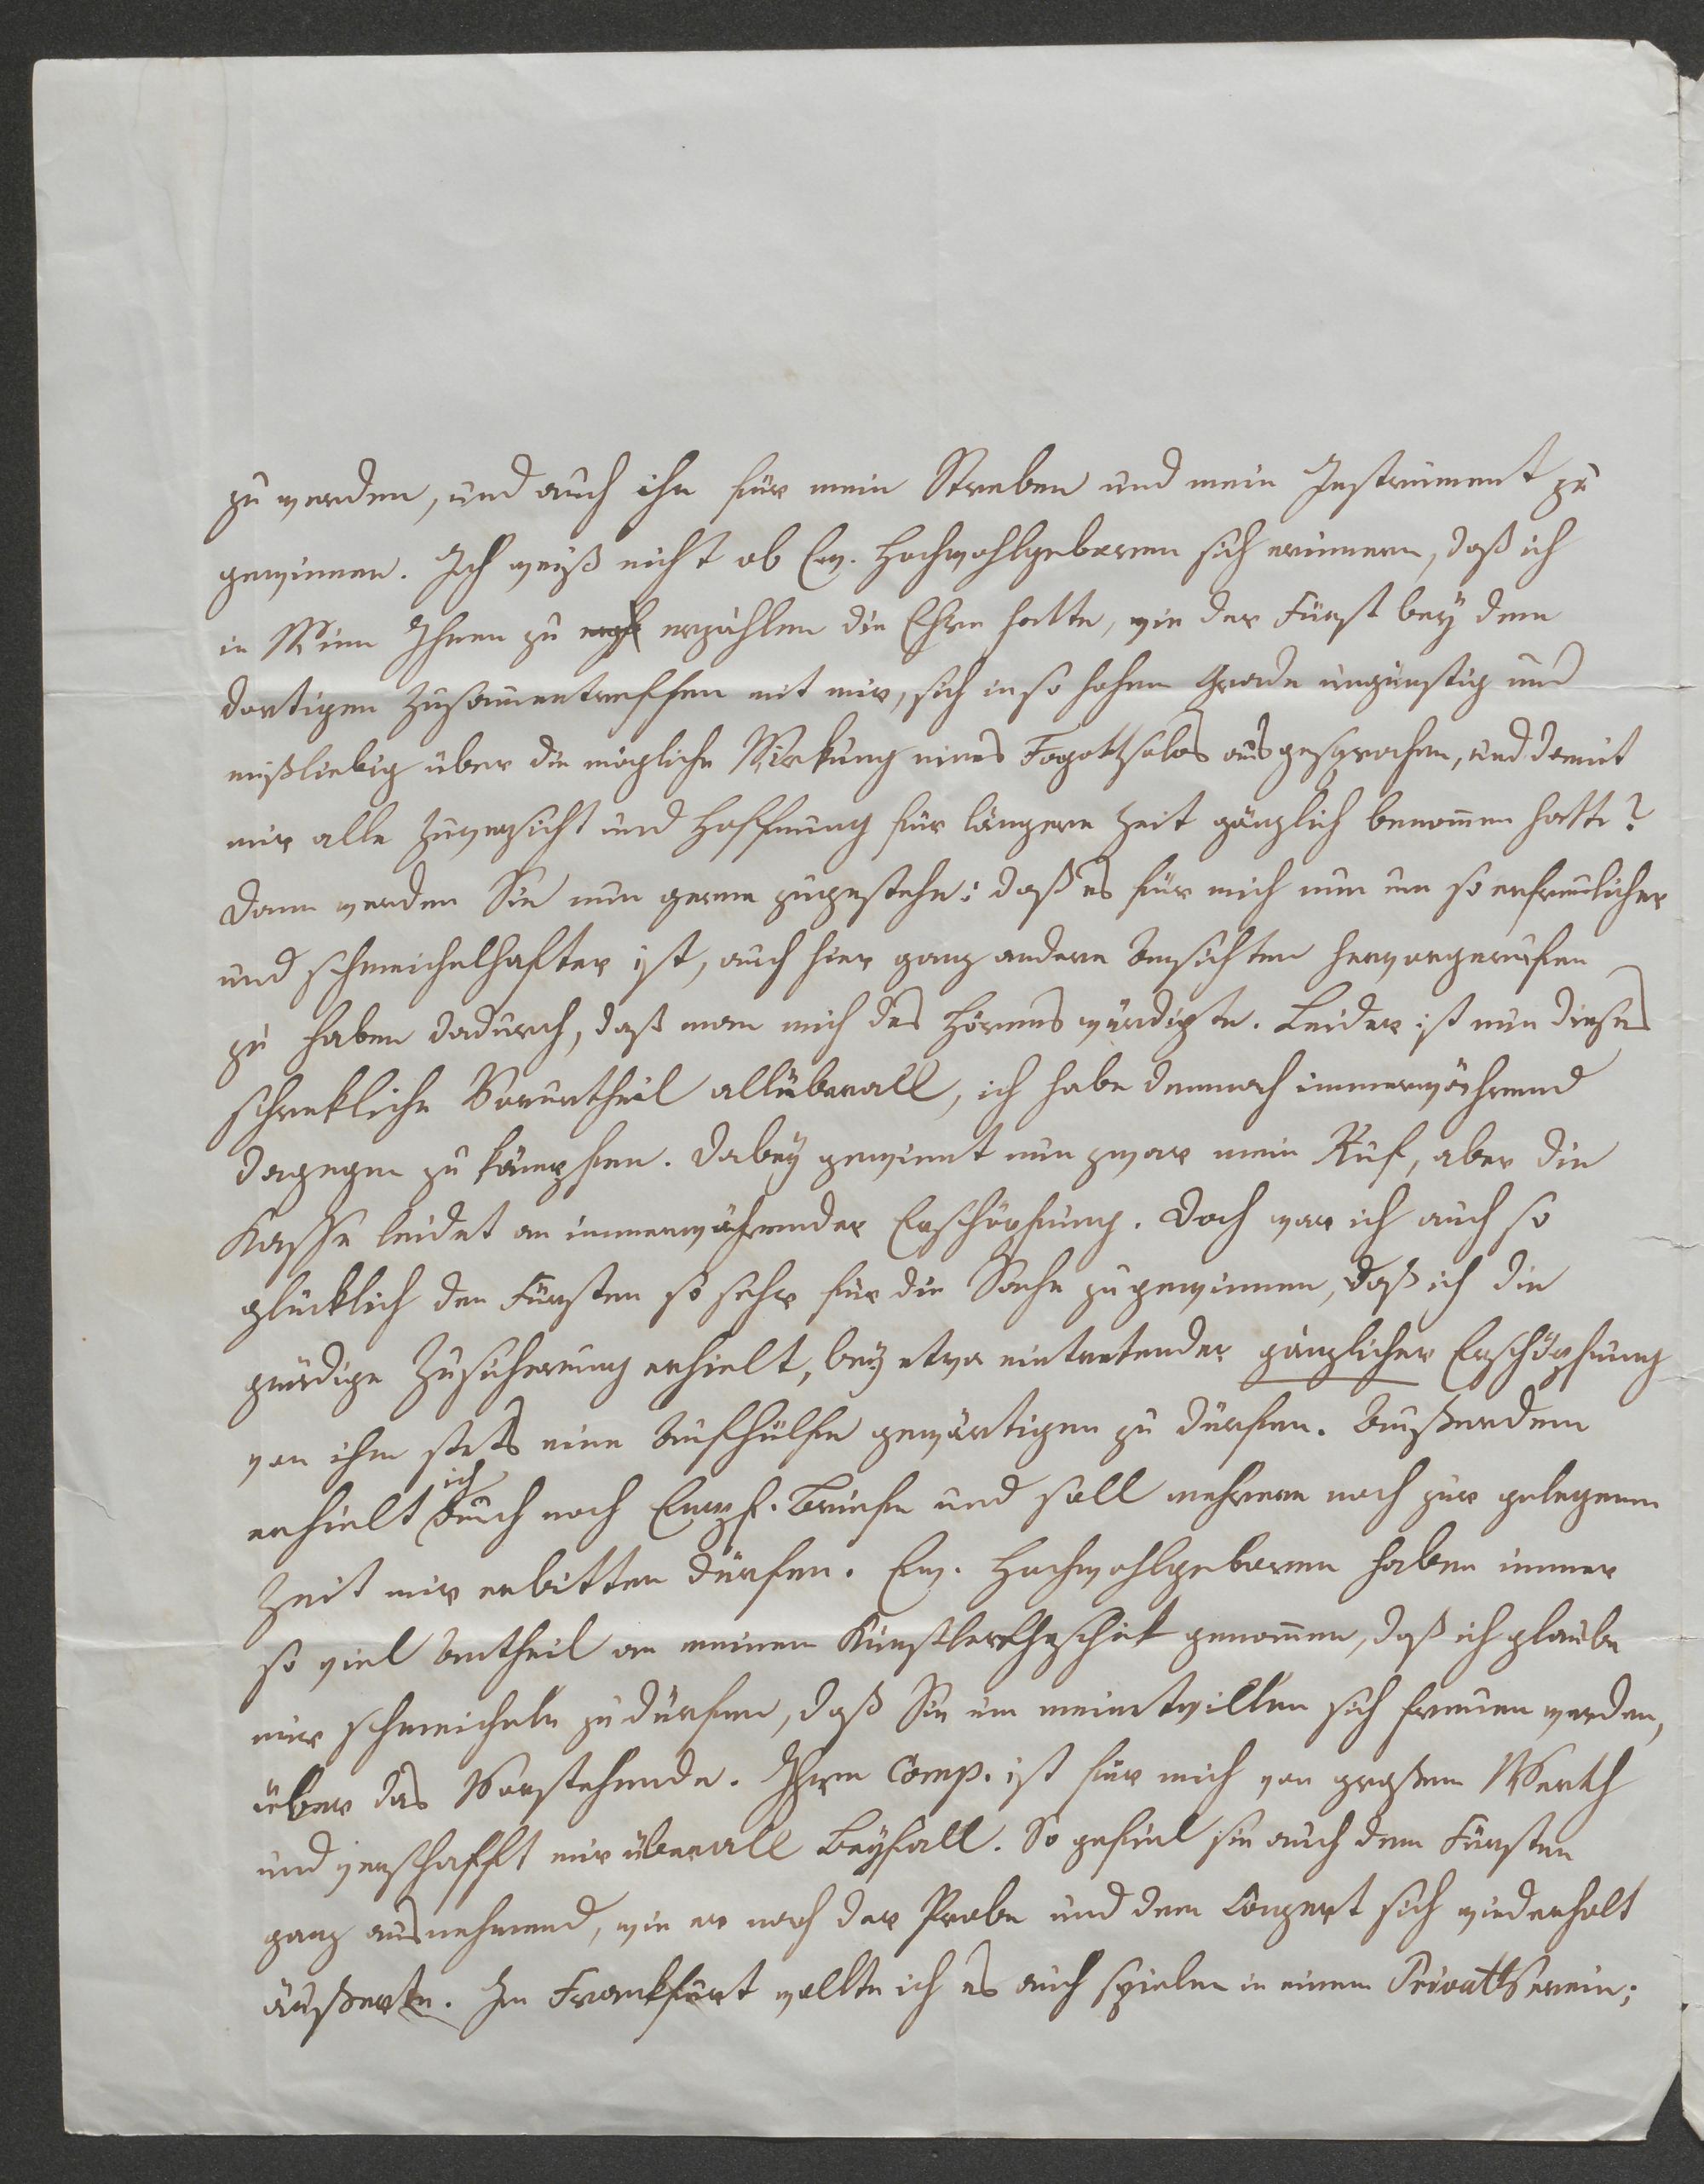 zu werden, und auch ihn für mein Streben und mein Instrument zu
gewinnen. Ich weiß nicht ob Ew. Hochwohlgeboren sich erinnern, daß ich
in Wien Ihnen zu erzählen die Ehre hatte, wie der Fürst bey dem
dortigen Zusammentreffen mit mir, sich in so hohem Grade ungünstig und
mißliebig über die mögliche Wirkung eines Fagottsolos ausgesprochen, und damit
mir alle Zuversicht und Hoffnung für längere Zeit gänzlich benommen hatte?
Dann werden Sie nun gerne zugestehn: daß es für mich nun um so erfreulicher
und schmeichelhafter ist, auch hier ganz andere Ansichten hervorgerufen
zu haben dadurch, daß man mich des Hörens würdigte. Leider ist nun dieses
schrekliche Vorurtheil allüberall, ich habe demnach immerwährend
dagegen zu kämpfen. Dabey gewinnt nun zwar mein Ruf, aber die
Kasse leidet an immerwährender Erschöpfung. Doch war ich auch so
glücklich den Fürsten so sehr für die Sache zu gewinnen, daß ich die
gnädige Zusicherung erhielt, bey etwa eintretender gänzlicher Erschöpfung
von ihm stets eine Aufhülfe gewärtigen zu dürfen. Außerdem
erhielt ich auch noch Empf. Briefe und soll mehrere noch zur gelegenen
Zeit mir erbitten dürfen. Ew. Hochwohlgeboren haben immer
so viel Antheil an meinem Künstlerthschick genommen, daß ich glaube
mir schmeicheln zu dürfen, daß Sie um meinetwillen sich freuen werden,
über das Vorstehende. Ihre Comp. ist für mich von großem Werth
und verschafft mir überall Beyfall. So gefiel sie auch dem Fürsten
ganz ausnehmend, wie er nach der Probe und dem Conzert sich wiederholt
äußerte. In Frankfurt wollte ich es auch spielen in einem Privatverein;